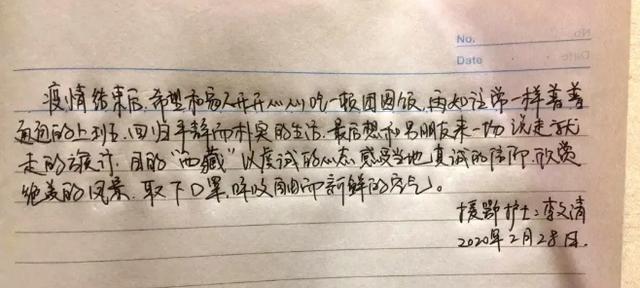 No.
Date
疫情结束后,希望和家人开开心心吃一顿团圆饭,再如往常一样普普
通通的上班,回归平静而朴实的生活。最后想和男朋友来一场说走就
走的旅行,目的"西藏"以虔诚的心态,感受当地真诚的信仰,欣赏
绝美的风景,取下口罩,呼吸自由而新鲜的空气。
援鄂护士:李文清
2020年2月28日.